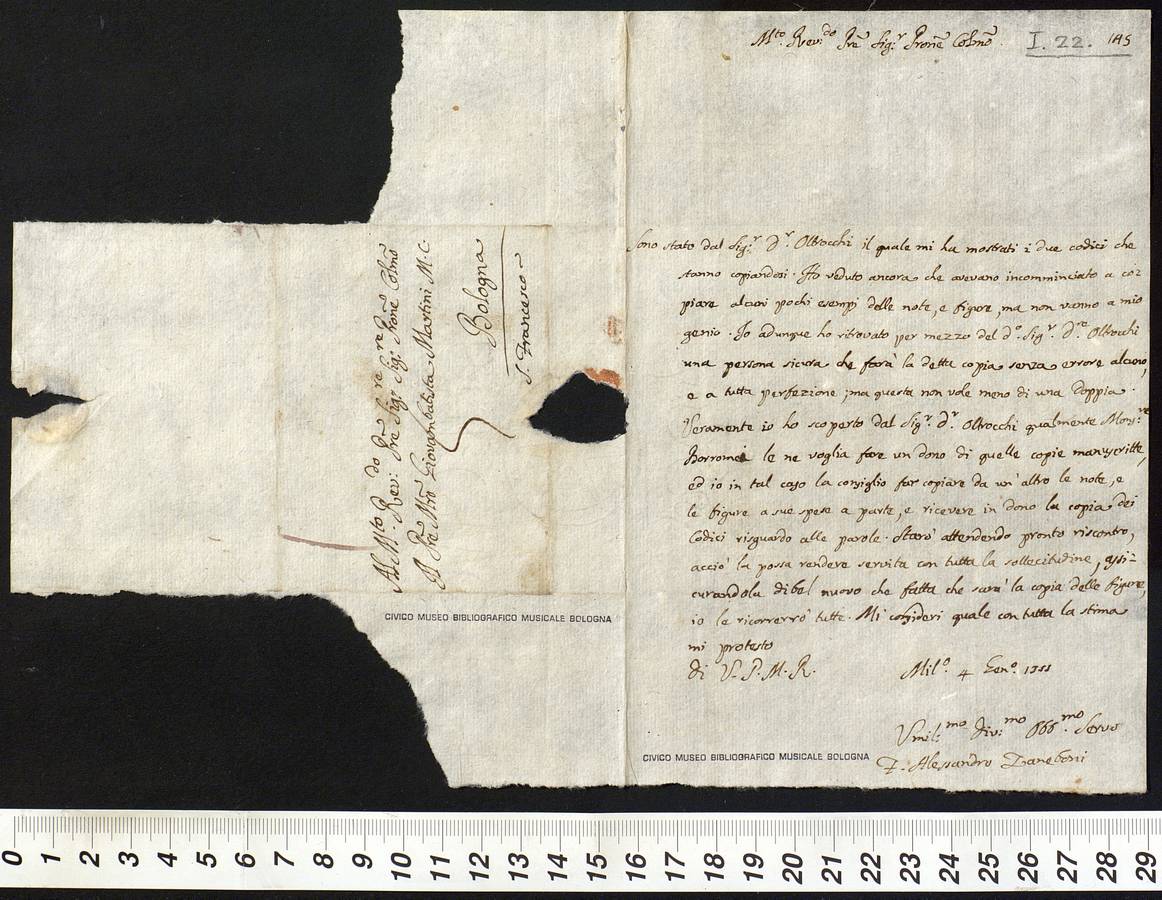 M.to Rev.do Pre Sig.r Prone Colmo
I. 22. 145
Sono stato dal Sig.r D.r Oltrocchi il quale mi ha mostrati i due codici che
stanno copiandosi. Ho veduto ancora che avevano incomminciato a co=
piare alcuni pochi esempi delle note, e figure, ma non vanno a mio
genio. Io adunque ho ritrovato per mezzo del d.o Sig.r D.re Oltrocchi
una persona sicura che farà la detta copia senza errore alcuno,
e a tutta perfezione, ma questa non vole meno di una Doppia.
Veramente io ho scoperto dal Sig.r D.r Oltrocchi qualmente Mons.re
Borromei le ne voglia fare un dono di quelle copie manuscritte,
ed io in tal caso la consiglio far copiare da un' altro le note, e
le figure a sue spese a parte, e ricevere in dono la copia dei
Codici risguardo alle parole. Starò attendendo pronto riscontro,
acciò la possa rendere servita con tutta la sollecitudine, assi=
curandola di bel nuovo che fatta che sarà la copia delle figure,
io le ricorrerrò tutte. Mi consideri quale con tutta la stima
mi protesto
di V. P. M. R. Mil.o 4 Gen.o
Umil.mo Div.mo Obb.mo Servo
F. Alessandro Zaneboni
Al M.to Rev.do Pre Sig.re Sig.re Prone Colmo
Il Pre Mro Giovambatista Martini M. C.
Bologna
S. Francesco
CIVICO MUSEO BIBLIOGRAFICO MUSICALE BOLOGNA
CIVICO MUSEO BIBLIOGRAFICO MUSICALE BOLOGNA
0 1 2 3 4 5 6 7 8 9 10 11 12 13 14 15 16 17 18 19 20 21 22 23 24 25 26 27 28 29